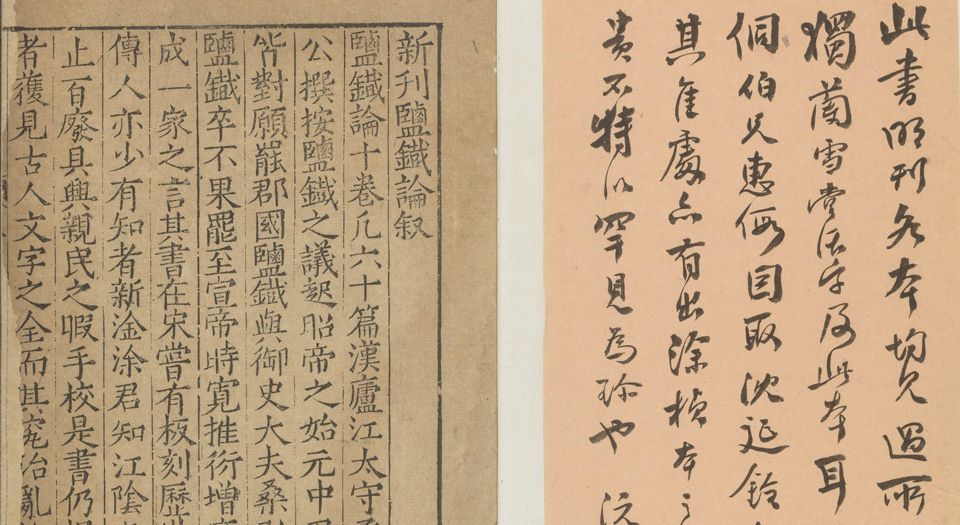 此書明刊各本均見過所
獨蘭雪堂活字及此本耳
侗伯兄惠假因取沈延銓
其佳處亦有出涂楨本
貴不特以罕見為珍也 沅
新刊鹽鐡論叙
鹽鐡論十卷凡六十篇漢廬江太守
公撰按鹽鐡之議起昭帝之始元中
皆對願罷郡國鹽鐡與御史大夫桑
鹽鐡卒不果罷至宣帝時寛推衍増
成一家之言其書在宋嘗有板刻歷
傳人亦少有知者新淦涂君知江陰
止百廢具興親民之暇手校是書仍
者獲見古人文字之全而其究治亂